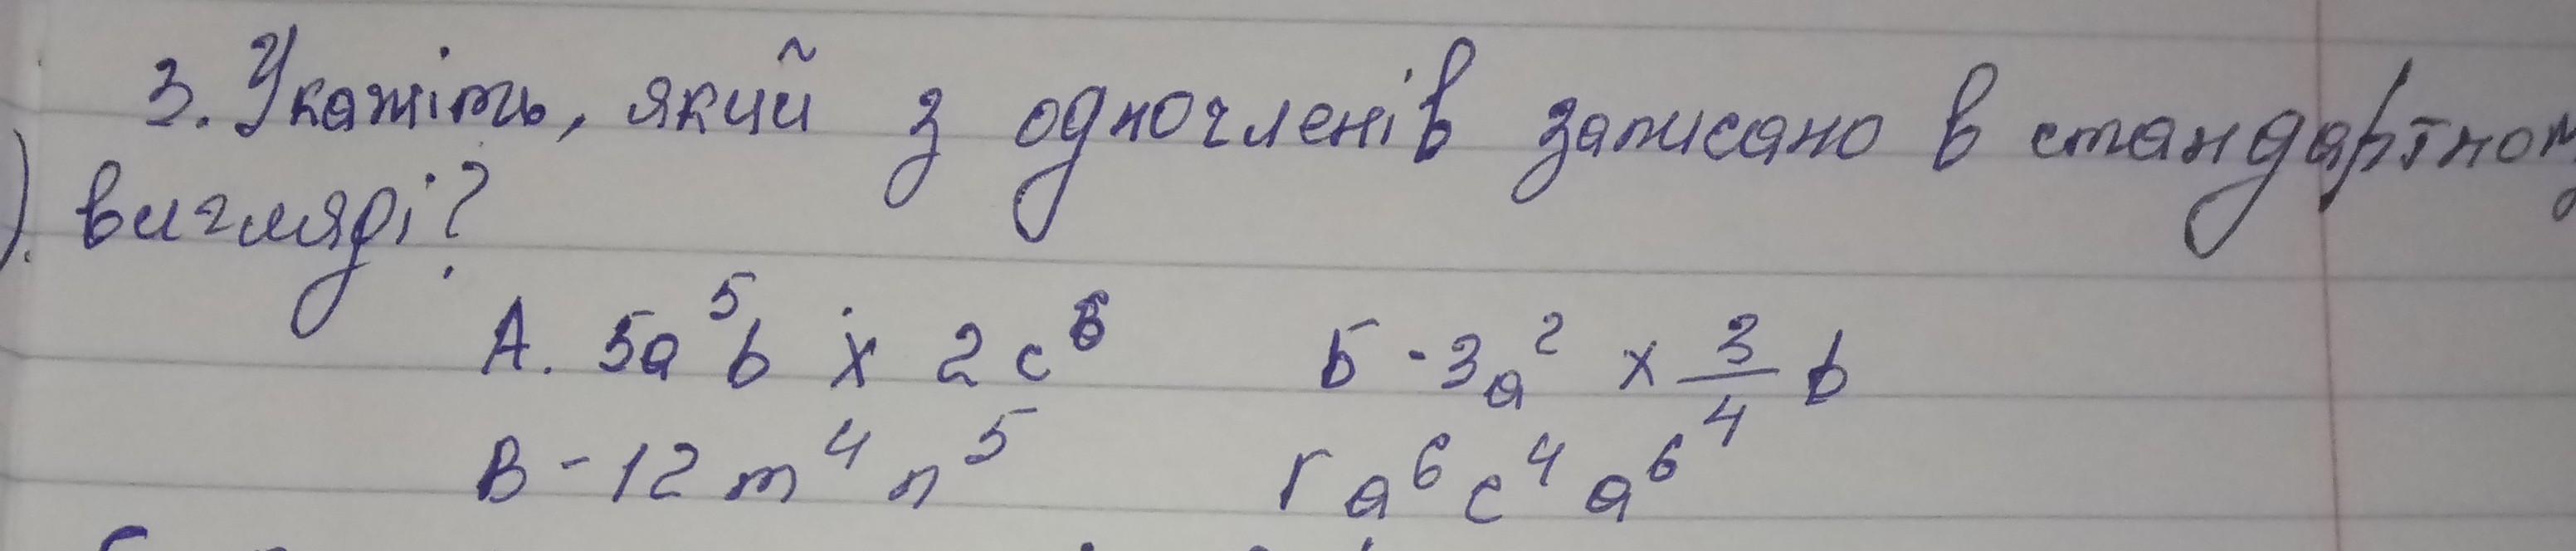 3. Укажіть, який з одночленів записано в стандартном
). вигляді?
А. 5a⁵b × 2c⁶ Б -3a² × 3/4 b
В -12m⁴n⁵ Г a⁶c⁴a⁶